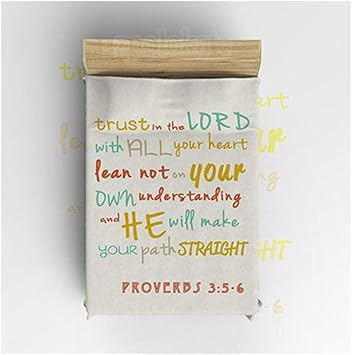 trust in the LORD
with ALL your heart
lean not on your
OWN understanding
and HE will make
YOUR path STRAIGHT
PROVERBS 3:5-6